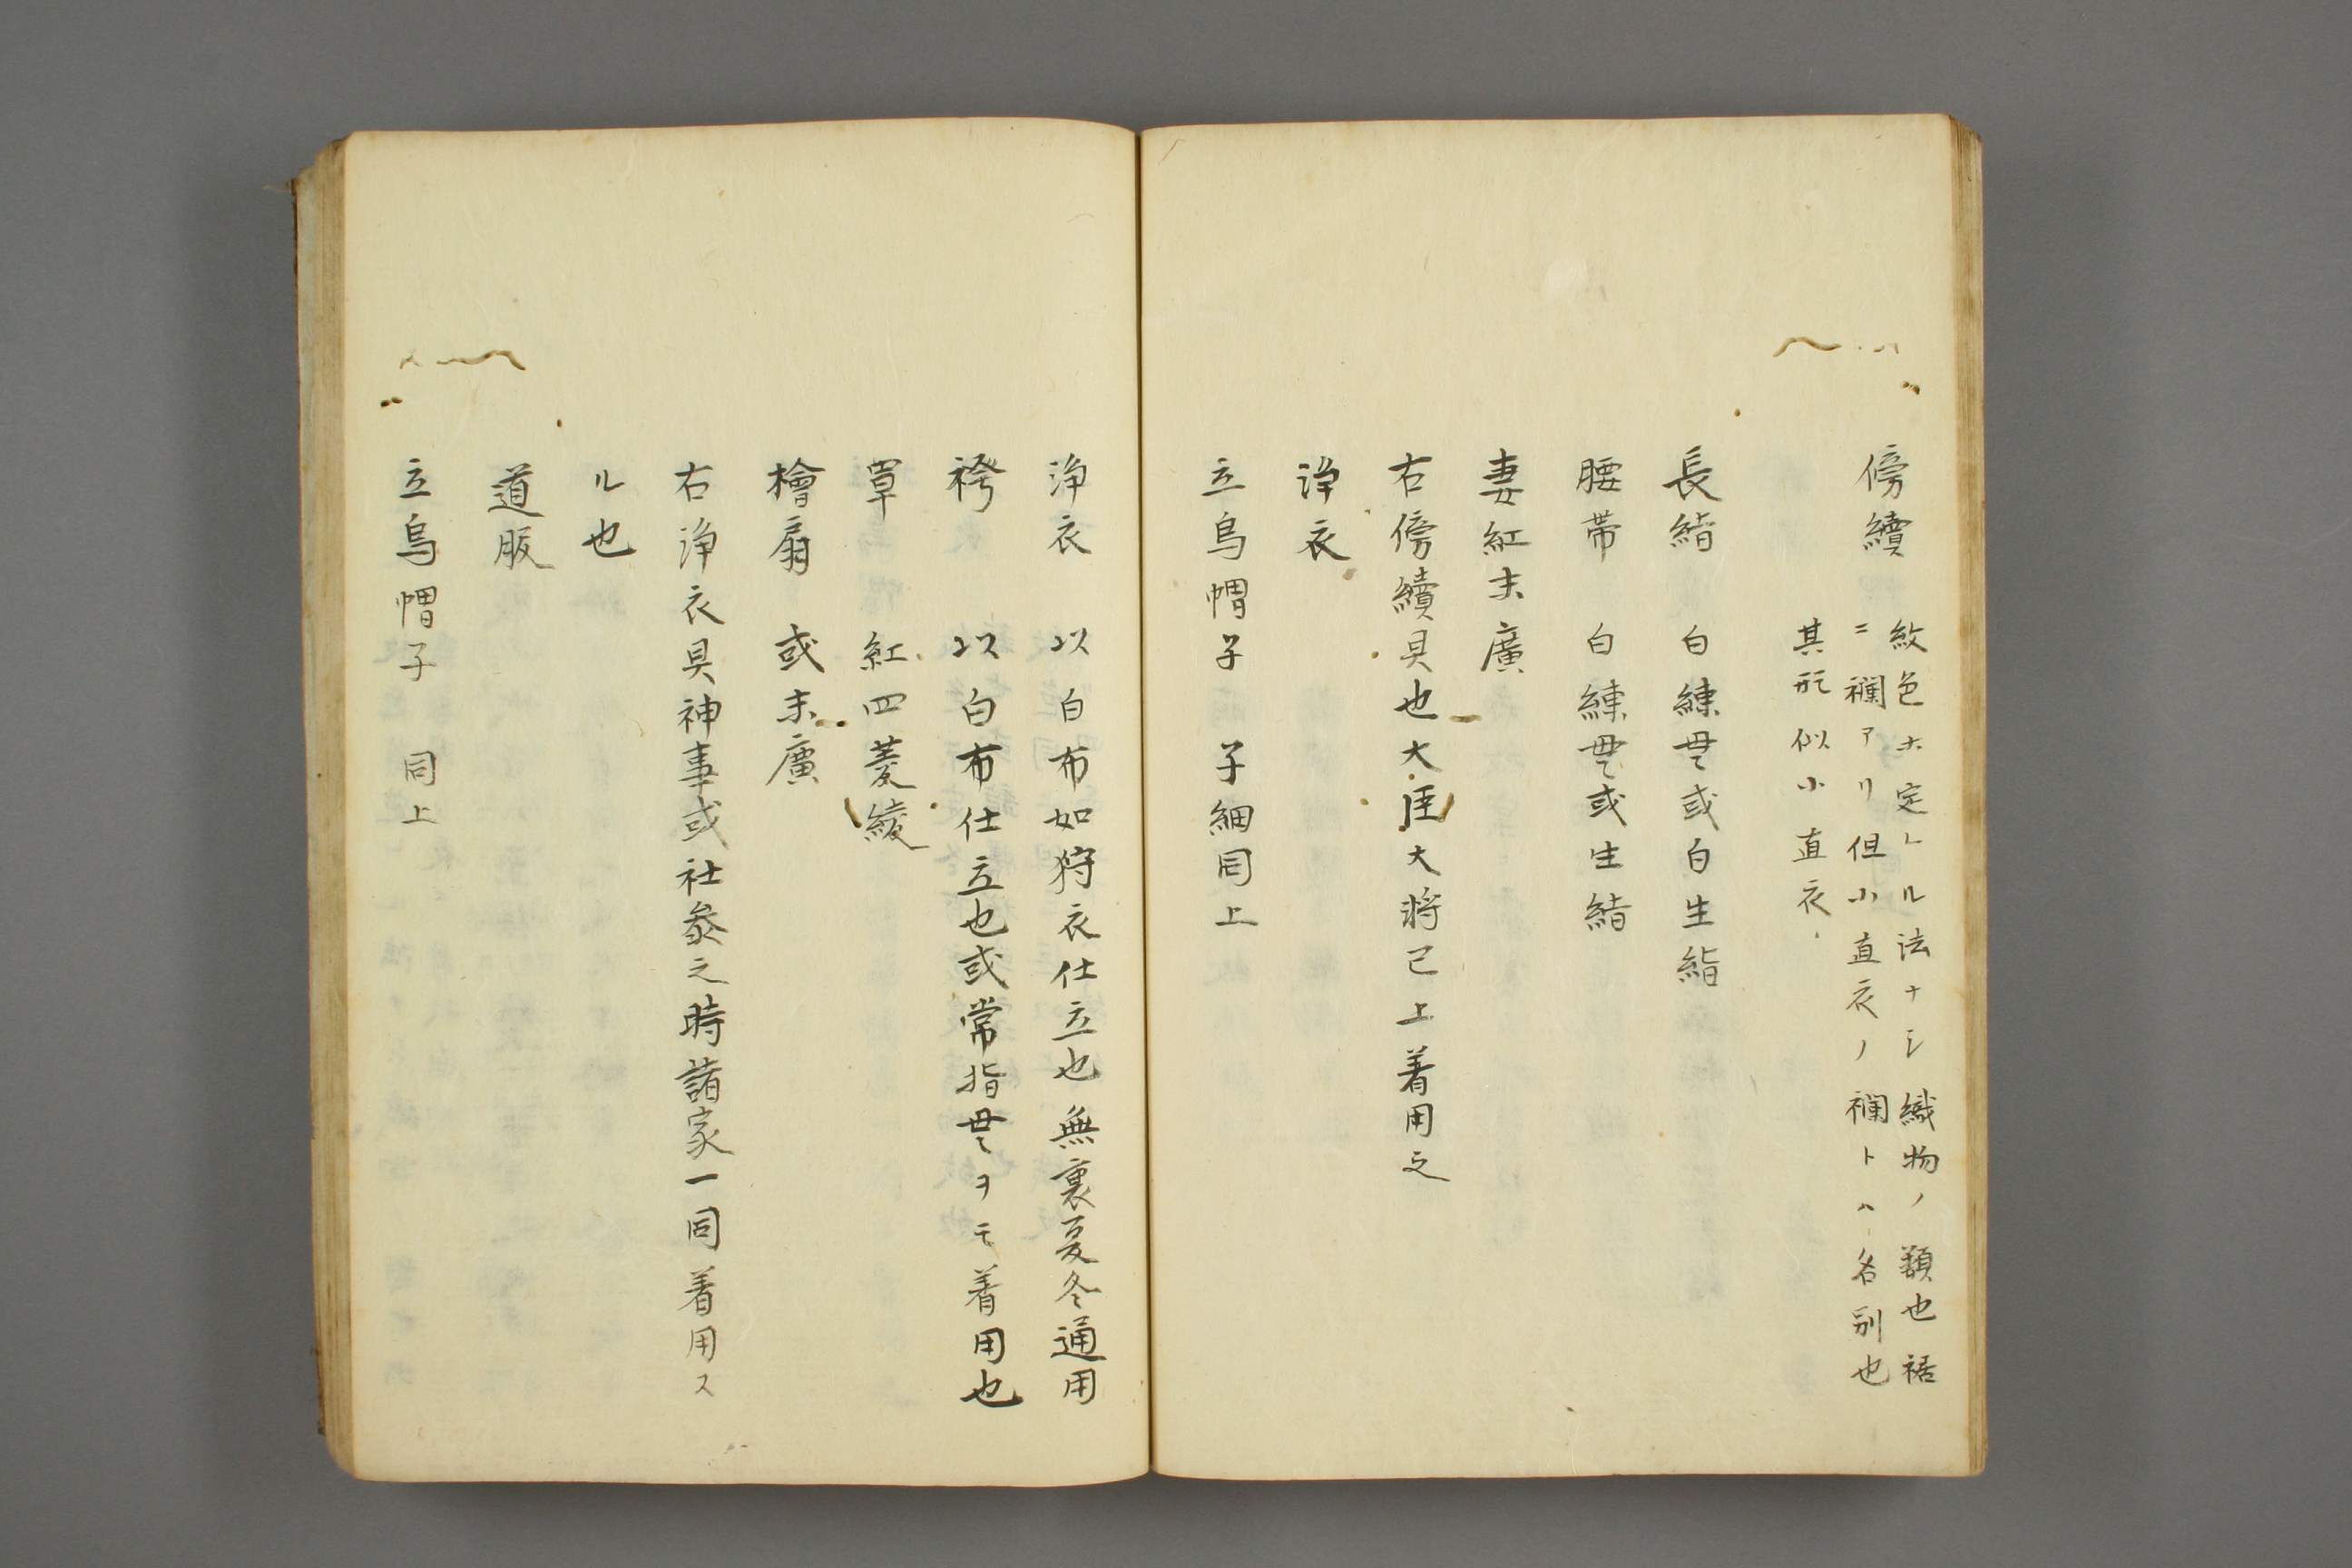 傍續
紋色ホ定レル法ナシ織物ノ類也裾
ニ襴アリ但小直衣ノ襴トハ名別也
其形似小直衣
長絹 白練貫或白生絹
腰帯 白練貫或生絹
妻紅末廣
右傍續具也大臣大将已上着用之
浄衣
立烏帽子 子細同上
浄衣 以白布如狩衣仕立也無裏夏冬通用
袴 以白布仕立也或常指貫ヲモ着用也
單 紅四菱綾
檜扇 或末廣
右浄衣具神事或社参之時諸家一同着用ス
ル也
道服
立烏帽子 同上